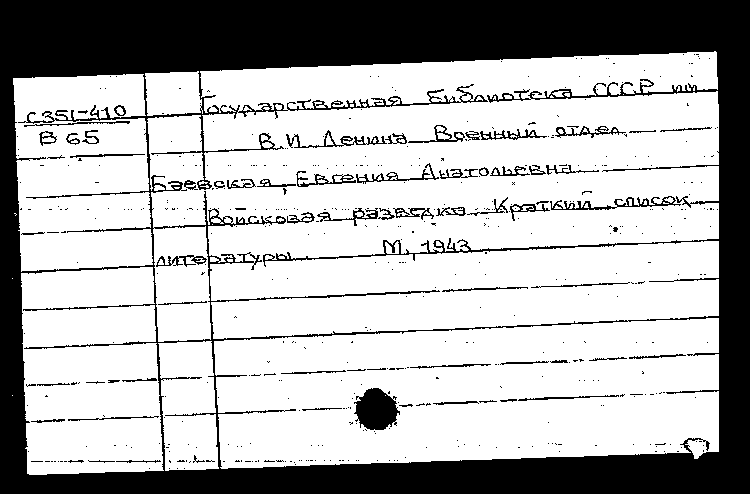 С351-410
В 65
Государственная библиотека СССР им.
В.И. Ленина Военный отдел.
Баевская, Евгения Анатольевна.
Войсковая разведка. Краткий список
литературы. М., 1943